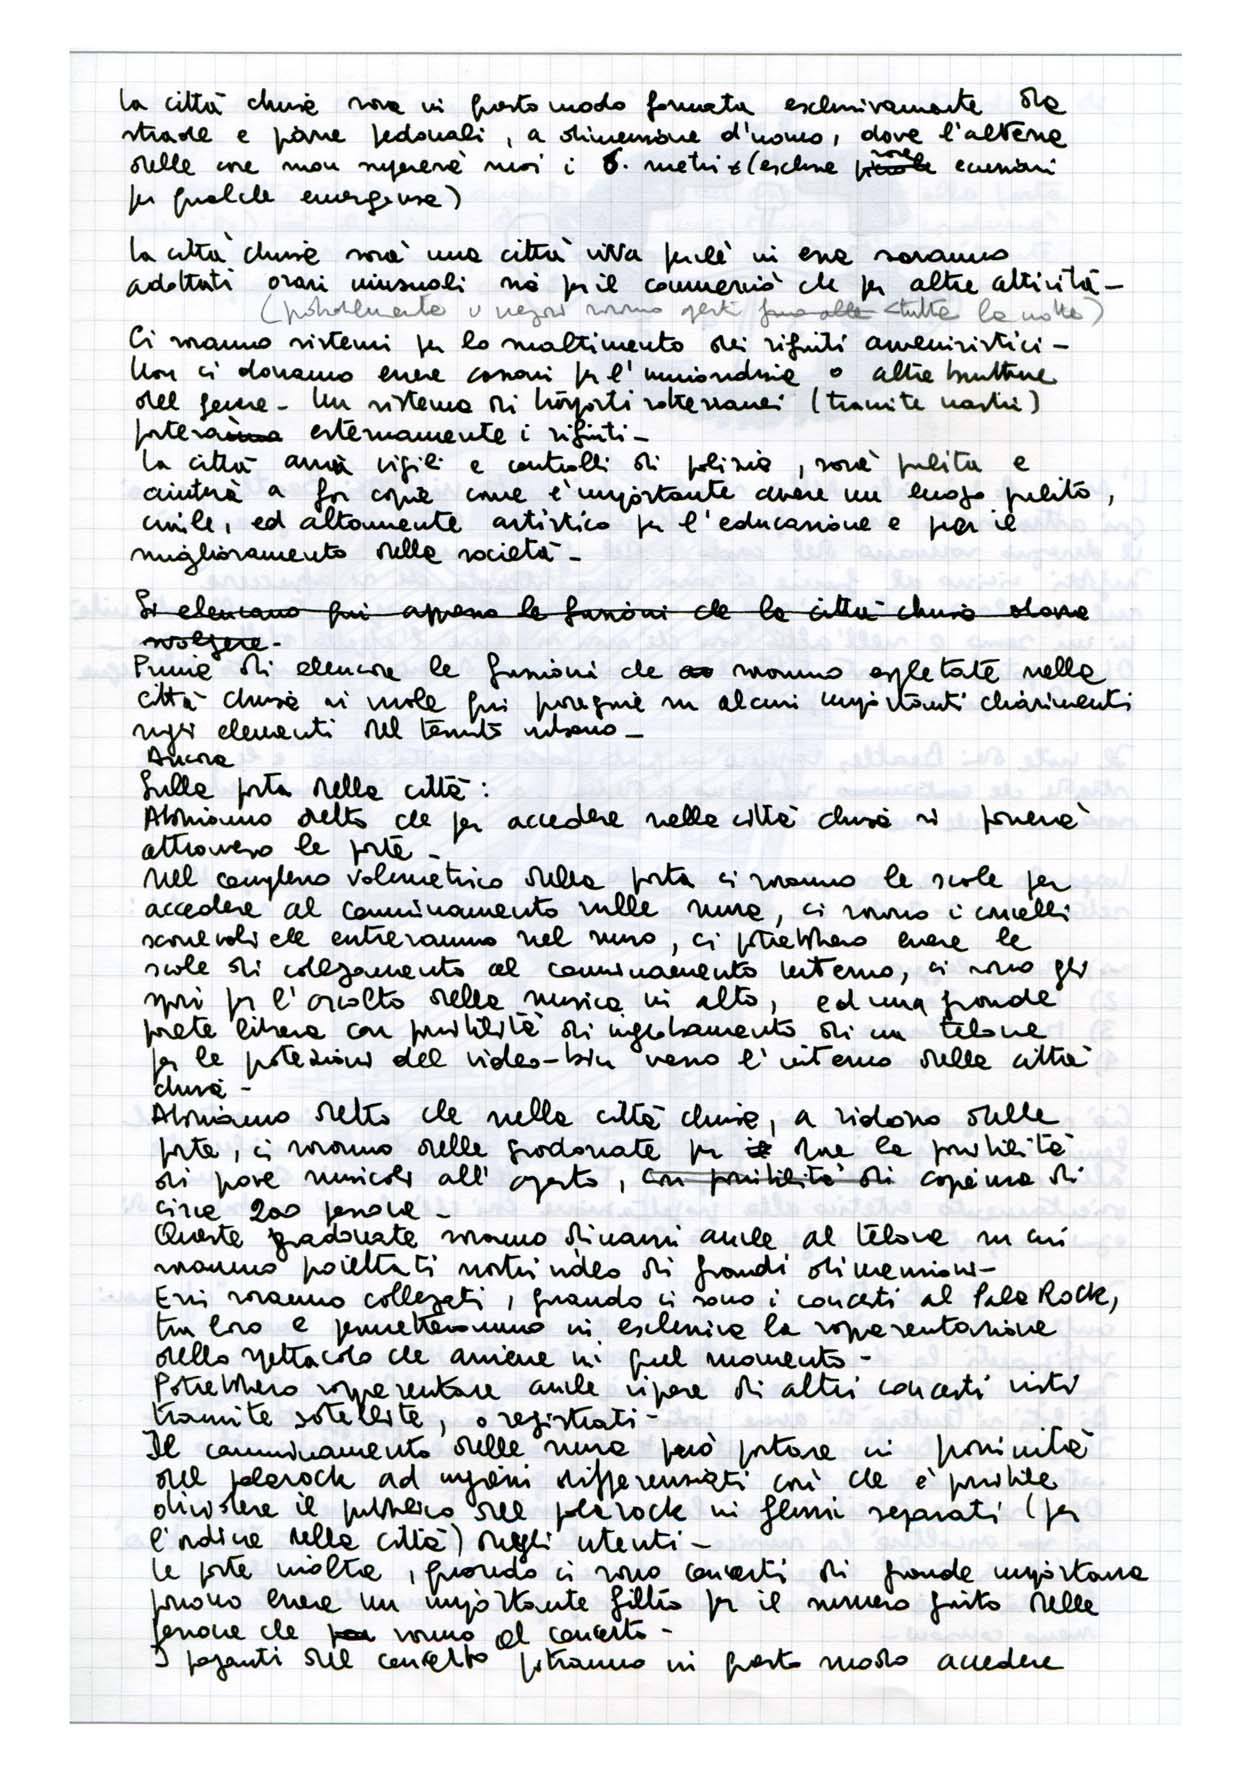 La città chiusa sarà in questo modo formata esclusivamente da
strade e piazze pedonali, a dimensione d'uomo, dove l'altezza
delle case non supererà mai i 6. metri (escluse rare eccezioni
per qualche emergenza)
La città chiusa sarà una città viva perché in essa saranno
adottati orari inusuali sia per il commercio che per altre attività -
(probabilmente i negozi saranno aperti tutta la notte)
Ci saranno sistemi per lo smaltimento dei rifiuti avveniristici -
Non ci dovranno essere cassoni per l'immondizia o altre brutture
del genere - Un sistema di trasporti sotterranei (tramite nastri)
porterà esternamente i rifiuti -
La città avrà vigili e controlli di polizia, sarà pulita e
aiuterà a far capire come è importante avere un luogo pulito,
civile, ed altamente artistico per l'educazione e per il
miglioramento della società -
Si elencano qui appresso le funzioni che la città chiusa dovrà
svolgere -
Prima di elencare le funzioni che saranno espletate nella
città chiusa si vuole qui proseguire su alcuni importanti chiarimenti
sugli elementi del tessuto urbano -
Ancora
Sulla porta della città:
Abbiamo detto che per accedere nella città chiusa si passerà
attraverso le porte -
Nel complesso volumetrico della porta ci saranno le scale per
accedere al camminamento sulle mura, ci sono i cancelli
scorrevoli che entreranno nel muro, ci potrebbero essere le
scale di collegamento al camminamento interno, ci sono gli
spazi per l'ascolto della musica in alto, ed una grande
parete libera con possibilità di inglobamento di un telone
per le proiezioni del video-bin verso l'interno della città
chiusa -
Abbiamo detto che nella città chiusa, a ridosso delle
porte, ci saranno delle gradonate per dare la possibilità
di fare musica all'aperto, con possibilità di capienza di
circa 200 persone -
Queste gradonate saranno dinanzi anche al telone su cui
saranno proiettati nastri video di grandi dimensioni -
Essi saranno collegati, quando ci sono i concerti al PalaRock,
tra loro e permetteranno in esclusiva la rappresentazione
dello spettacolo che avviene in quel momento -
Potrebbero rappresentare anche riprese di altri concerti visti
tramite satellite, o registrati -
Il camminamento delle mura può portare in prossimità
del palarock ad ingressi differenziati così che è possibile
dividere il pubblico del palarock in flussi separati (per
l'ordine della città) dagli utenti -
Le porte inoltre, quando ci sono concerti di grande importanza
possono essere un importante filtro per il numero finito delle
persone che vanno al concerto -
I paganti del concerto potranno in questo modo accedere